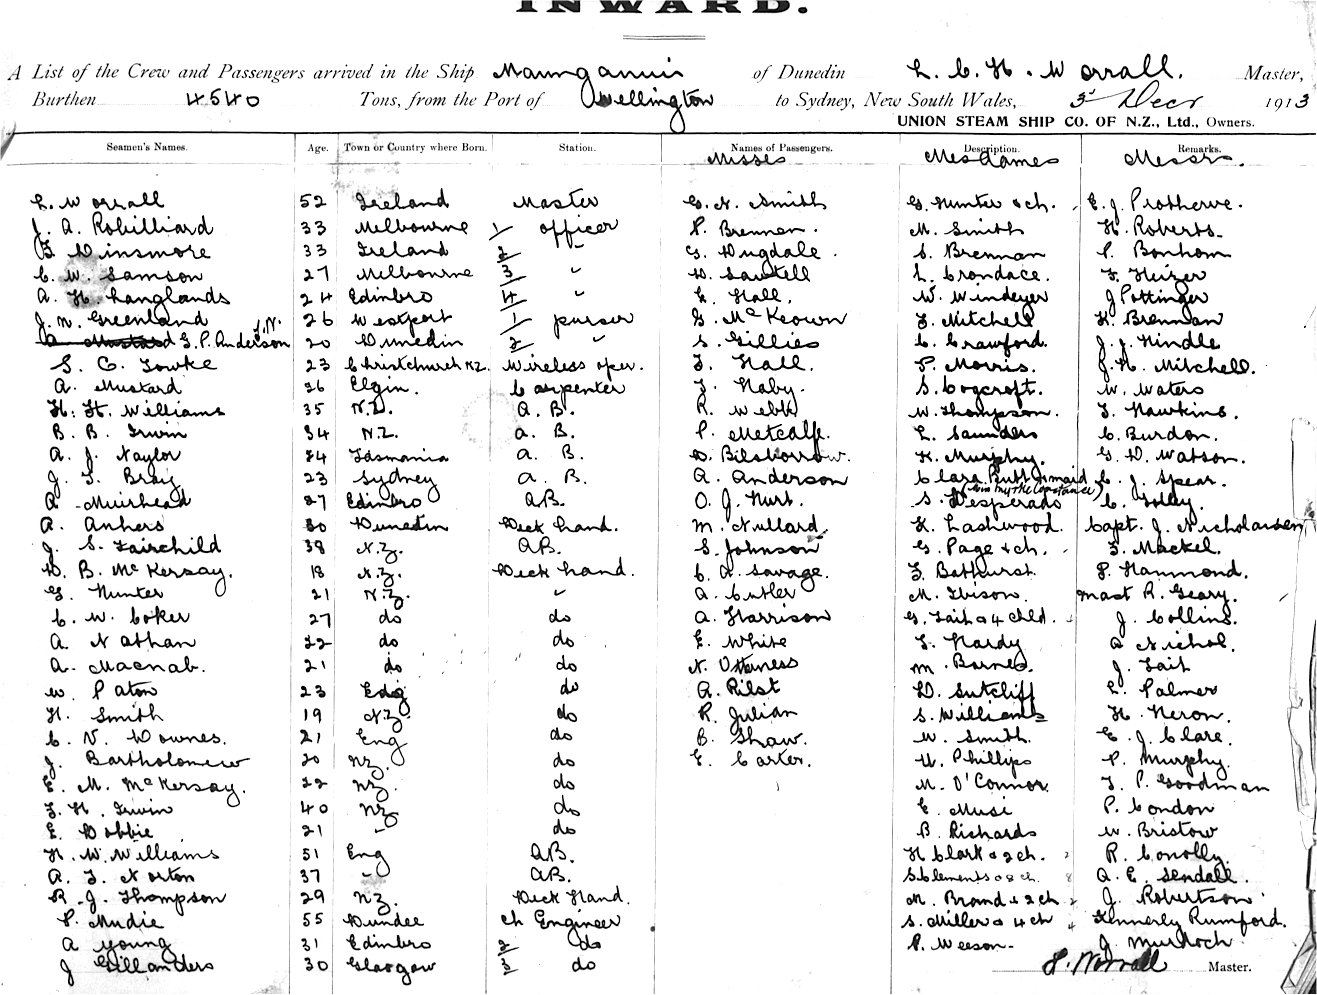 INWARD.
A List of the Crew and Passengers arrived in the Ship Maunganui of Dunedin L. C. H. Worrall. Master,
Burthen 4540 Tons, from the Port of Wellington to Sydney, New South Wales, 3d Decr 1913
UNION STEAM SHIP CO. OF N.Z., Ltd., Owners.
Seamen's Names. Age. Town or Country where Born. Station. Names of Passengers. Description. Remarks.
Misses Mesdames Messrs.
L. Worrall 52 Ireland Master G. N. Smith G. Hunter & ch. E. J. Protherve.
J. A. Robilliard 33 Melbourne 1 officer P. Brennen. M. Smith H. Roberts.
B. Dinsmore 33 Ireland 2 " G. Dugdale. S. Brennan P. Bonham
C. W. Samson 27 Melbourne 3 " D. Sawtell L. Crondace. F. Heizer
A. H. Langlands 24 Edinbro 4 " E. Hall. W. Windeyer J Pottinger
J. M. Greenland 26 Westport 1 purser G. McKeown F. Mitchell H. Brennan
J. N. G. P. Anderson 20 Dunedin 2 " S. Gillies C. Crawford. J. J. Hindle
S. C. Towke 23 Christchurch NZ. Wireless oper. F. Hall P. Morris. J. H. Mitchell.
A. Mustard 26 Elgin. Carpenter F. Haby. S. Cogcroft. W. Waters
H. H. Williams 35 N.Z. A. B. R. Webb W. Thompson. F. Hawkins.
B. B. Irwin 34 N.Z. A. B. P. Metcalfe. L. Saunders C. Burdon.
A. J. Naylor 24 Tasmania A. B. D. Bilsborrow. K. Murphy. G. D. Watson.
J. T. Bray 23 Sydney A. B. A. Anderson Clara Butt & maid C. J. Spear.
A. Muirhead 27 Edinbro AB. O. J. Hurt. S. Desperado C. Tolley.
A. Anhers 30 Dunedin Deck hand. M. Nullard. K. Lashwood. Capt. J. Nicholarsen
J. S. Fairchild 38 N.Z. AB. S. Johnson G. Page & ch. F. Mackel.
D. B. McKersay. 18 N.Z. Deck hand. C. A. Savage. F. Bathurst P. Hammond.
G. Hunter 21 N.Z. " A. Cutler M. Ibison. Mast R. Geary.
C. W. Coker 27 do do A. Harrison G. Tait & 4 chld. J. Collins.
A. Nathan 22 do do E. White F. Hardy A Nichol.
A. Macnab. 21 do do N. Otterness M. Barnes. J. Tait
W. Paton 23 Edg do A. Pilst D. Sutcliff L. Palmer
H. Smith 19 NZ. do R. Julian S. Williams H. Heron.
C. V. Downes. 21 Eng do B. Shaw. W. Smith. E. J. Clare.
J. Bartholomew 20 NZ. do E. Carter. H. Phillips P. Murphy.
E. M. McKersay. 22 NZ. do M. O'Connor. F. P. Goodman
F. H. Irwin 40 NZ do E. Musi P. Condon
E. Dobbie 21 " do B. Richards W. Bristow
H. W. Williams 51 Eng AB. H Clark & 2 ch. R. Conolly.
A. F. Norton 37 " AB. S Clements & 8 ch. A. E. Sendall.
R. J. Thompson 29 NZ. Deck Hand. M. Brand & 2 ch J. Robertson.
P. Mudie 55 Dundee Ch Engineer S. Miller & 4 ch Kennerly Rumford.
A Young 31 Edinbro 2 do P. Weeson. J. Murdoch
J Gillanders 30 Glasgow 3 do L. Worrall Master.